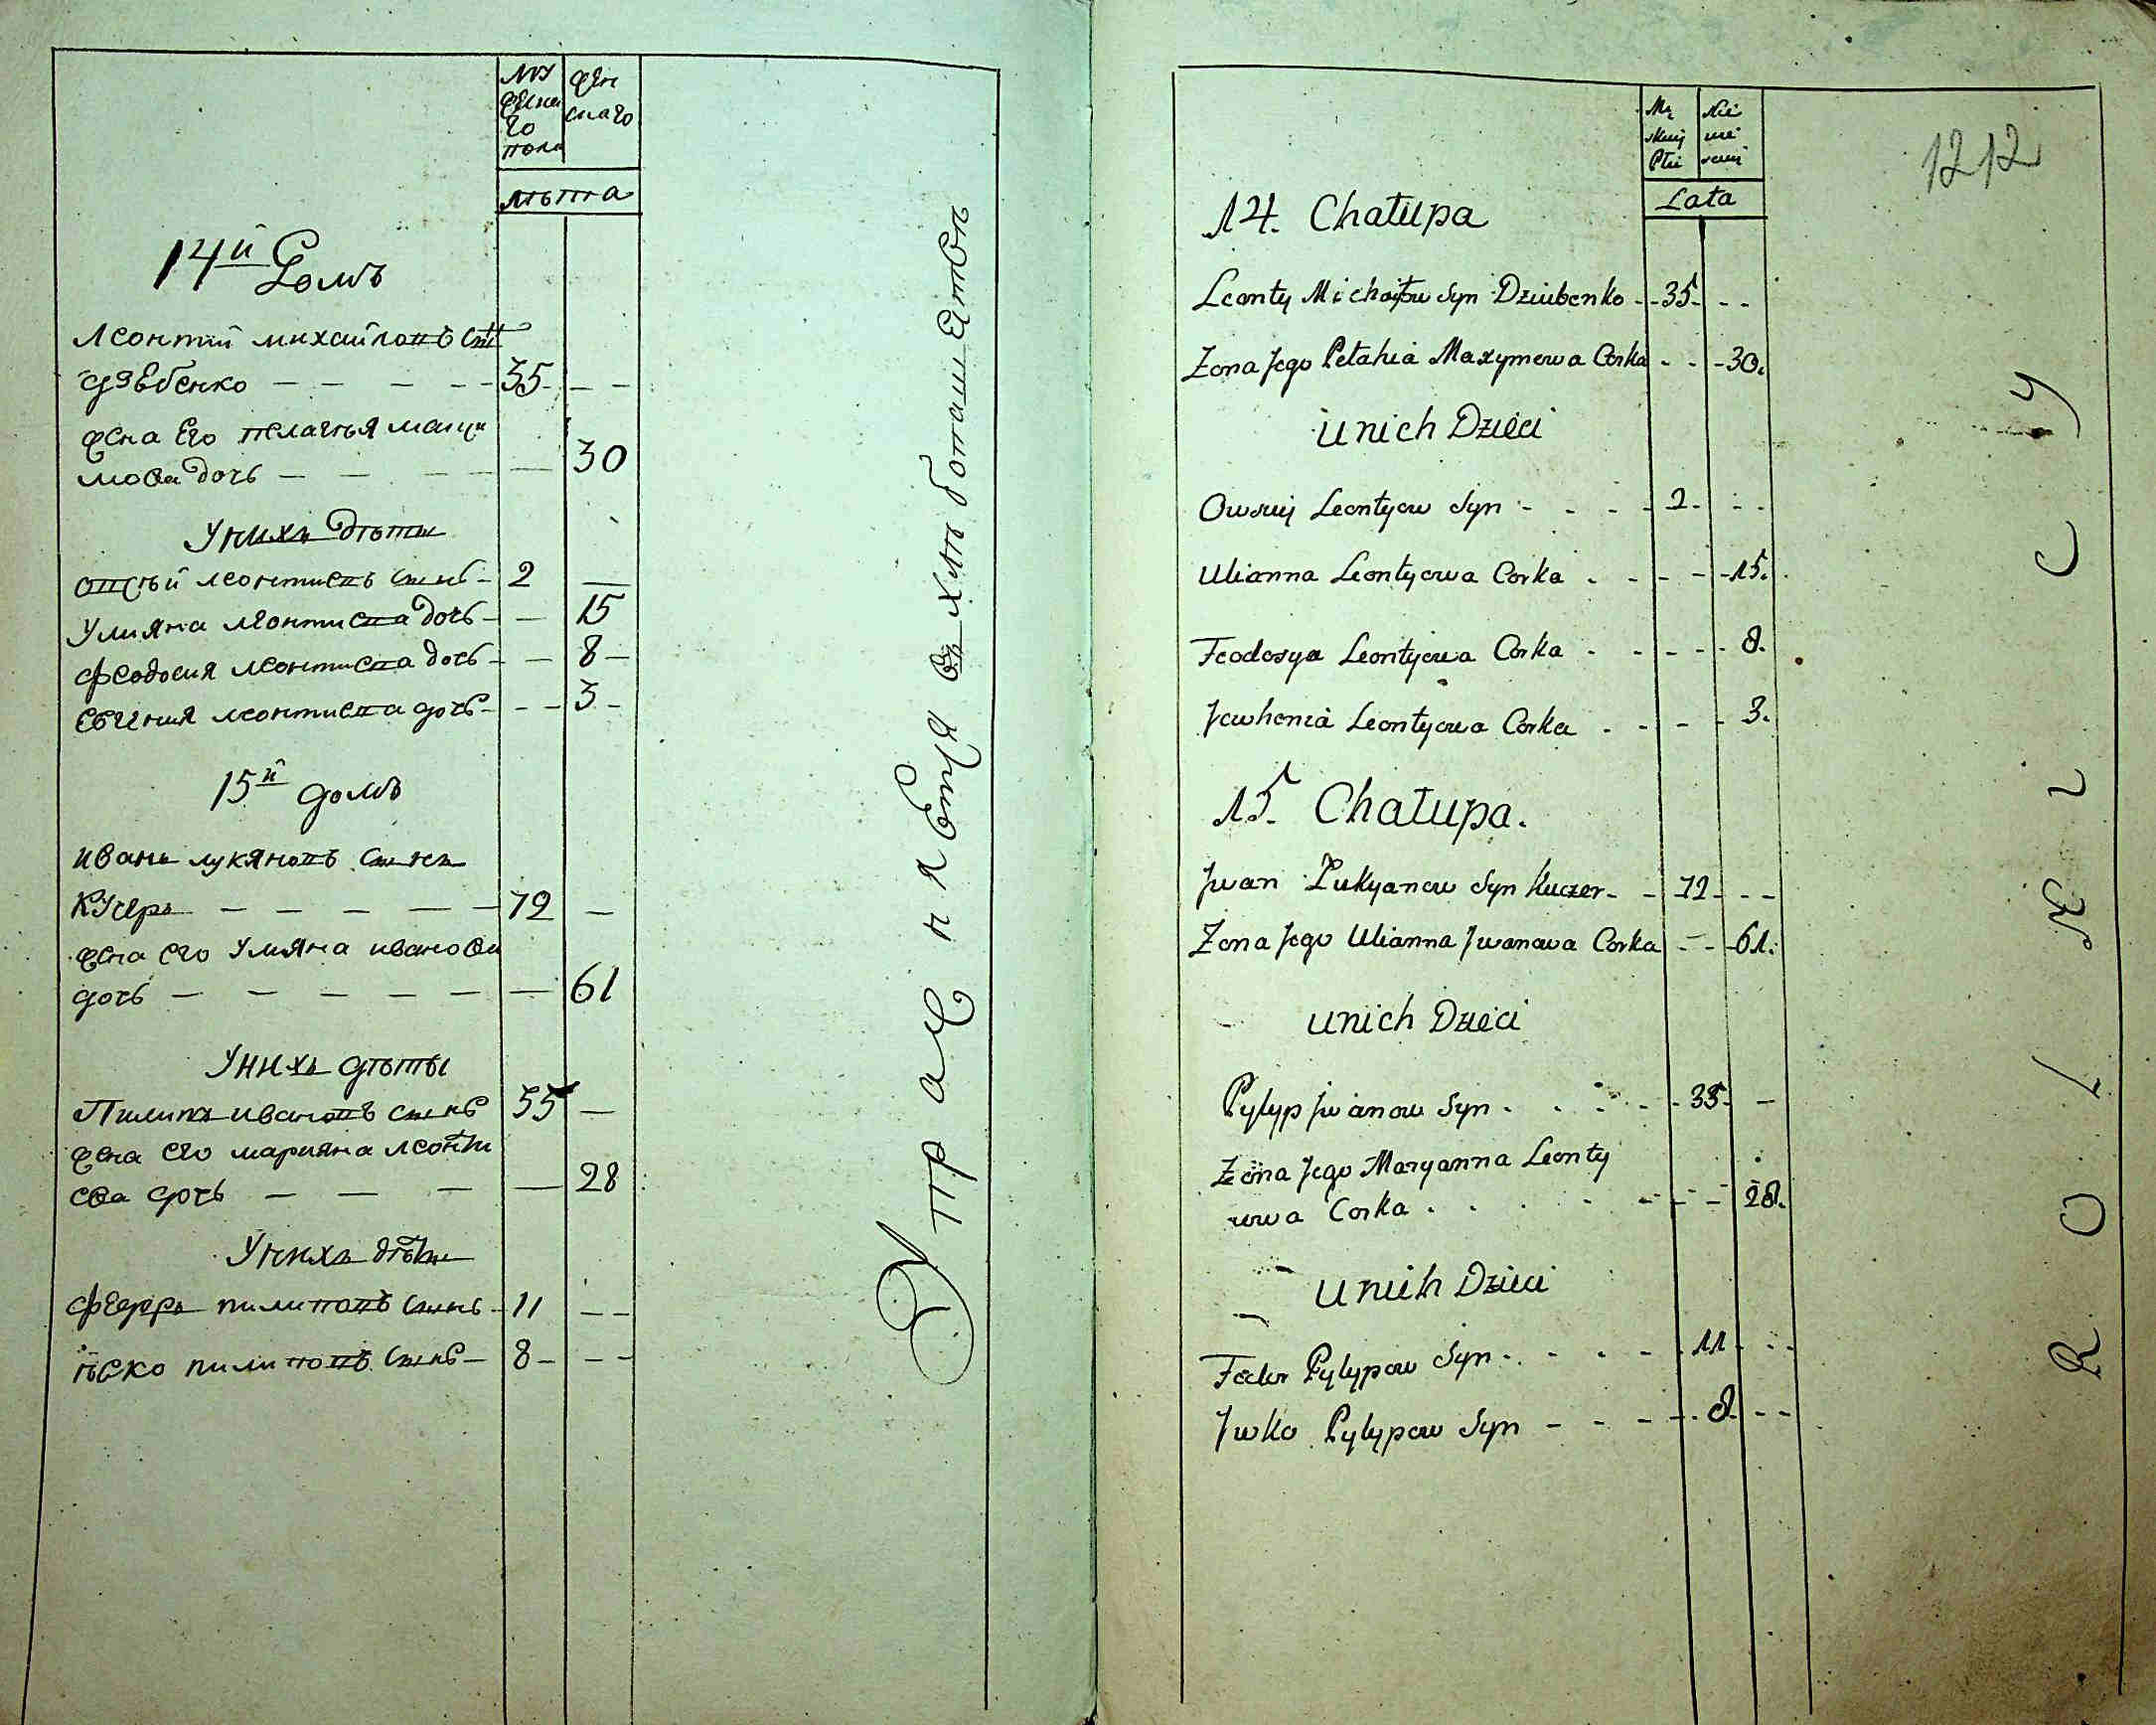 му
жеска
го
пола
жен
скаго
лѣта
14й Домъ
Леонтий михайловъ сынъ
дзюбенко — — — — 35 — —
жена Его пелагѣя макси
мова дочь — — — — 30
Унихъ дѣты
овсѣй леонтиевъ сынъ — 2 —
Улияна леонтиева дочь — — 15
феодосия леонтиева дочь — — 8 —
Евгения леонтиева дочь — — — 3 —
15й домъ
иванъ лукяновъ сынъ
Кучеръ — — — — — 72 —
жена его Уляна иванова
дочь — — — — — — — 61
Унихъ дѣты
Пилипъ ивановъ сынъ 35 —
жена его марияна леонти
ева дочь — — — — 28
Унихъ дѣты
федоръ пилиповъ сынъ — 11 — —
пилиповъ сынъ — 8 — — —
въ
Mę
skiej
Płci
Nie
wie
sciej
Lata
1212
14. Chałupa
Leonty Michajłow Syn Dziubenko - - 35 - - -
Zona Jego Pelahia Maxymowa Corka - - - 30.
u nich Dzieci
Owsiej Leontyow Syn - - - - 2. - - -
Ulianna Leontyowa Corka . - - - - 15.
Feodosya Leontyowa Corka . - - - - 8.
Jewhenia Leontyowa Corka . - - - 3.
15. Chałupa.
Jwan Łukyanow Syn Kuczer - - 72 - - -
Zona Jego Ulianna Jwanowa Corka - - - 61.
u nich Dzieci
Pylyp Jwanow Syn . . . - - 35 - —
Zona Jego Maryanna Leonty
owa Corka . . . . - - - - 28.
u nich Dzieci
Fedor Pylypow Syn - . - - - - 11 - - -
Jwko Pylypow Syn - - - - - 8. - -